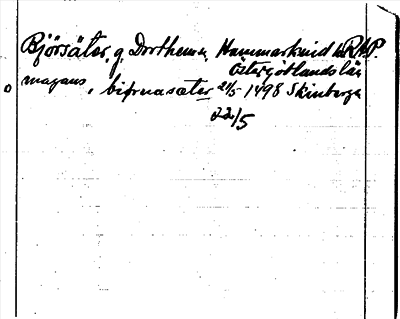 Björsäter, g, Dorthemn Hammarkind h RAP.
Östergötlands län
magans, biørnasæter 21/5 1498 Skinberga
22/5